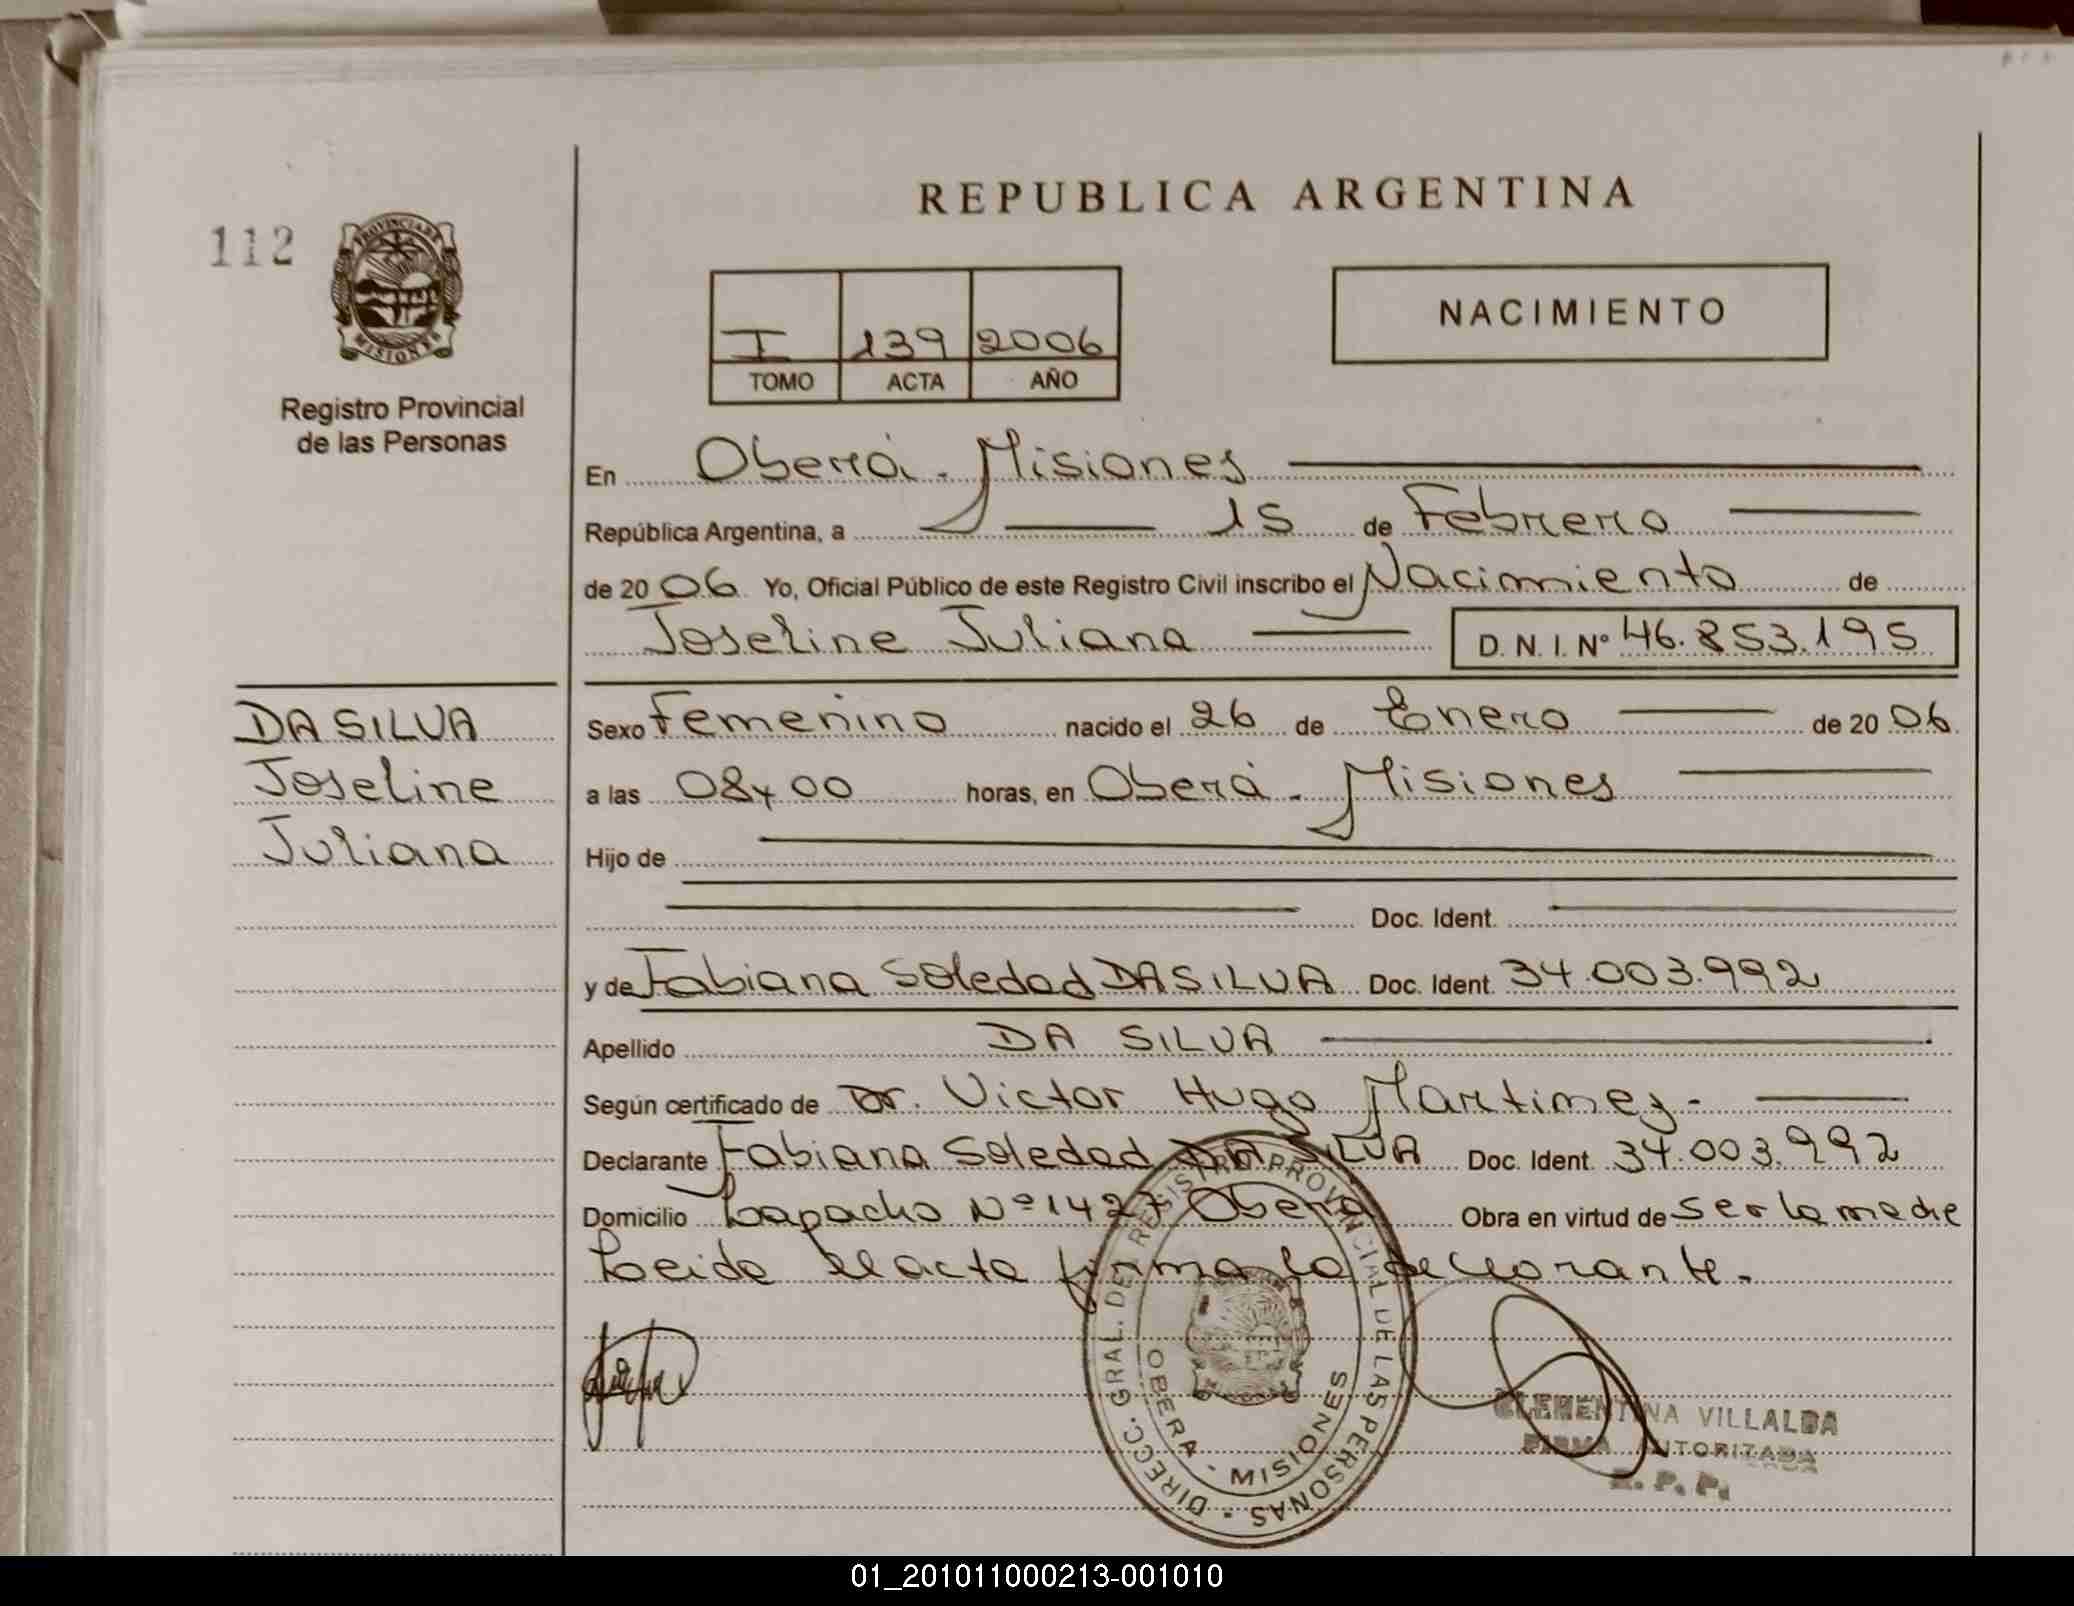 112
PROVINCIA DE
MISIONES
Registro Provincial
de las Personas
REPUBLICA ARGENTINA
I 139 2006
TOMO ACTA AÑO
NACIMIENTO
En Oberá - Misiones
República Argentina, a 15 de Febrero
de 20 06 Yo, Oficial Público de este Registro Civil inscribo el Nacimiento de
Joseline Juliana D. N. I. Nº 46.853.195
DA SILVA
Joseline
Juliana
Sexo Femenino nacido el 26 de Enero de 20 06
a las 08y00 horas, en Oberá - Misiones
Hijo de
Doc. Ident.
y de Fabiana Soledad DA SILVA Doc. Ident. 34.003.992
Apellido DA SILVA
Según certificado de Dr. Victor Hugo Martinez-
Declarante Fabiana Soledad DA SILVA Doc. Ident. 34.003.992
Domicilio Lapacho Nº 1427 Oberá Obra en virtud de ser la madre
Leida el acta firma la declarante.
DIRECC. GRAL. DEL REGISTRO PROVINCIAL DE LAS PERSONAS -
OBERA - MISIONES
CLEMENTINA VILLALBA
FIRMA AUTORIZADA
R. P. P.
01_201011000213-001010